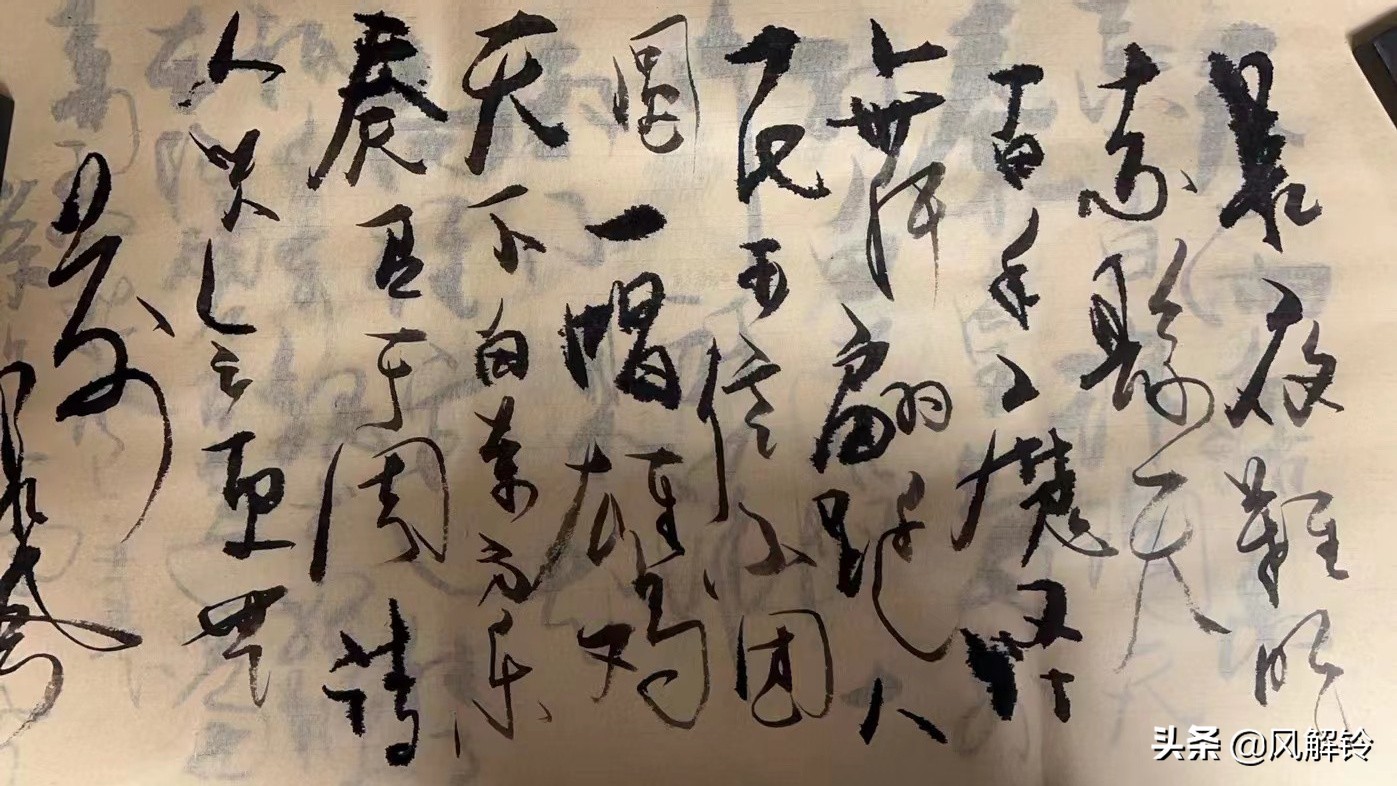 長夜難明
赤縣天
百年魔怪
舞翩躚人
民五億不团
圓一唱雄鸡
天下白萬方乐
奏有于闐詩
人兴会更無
前
头条 @风解铃